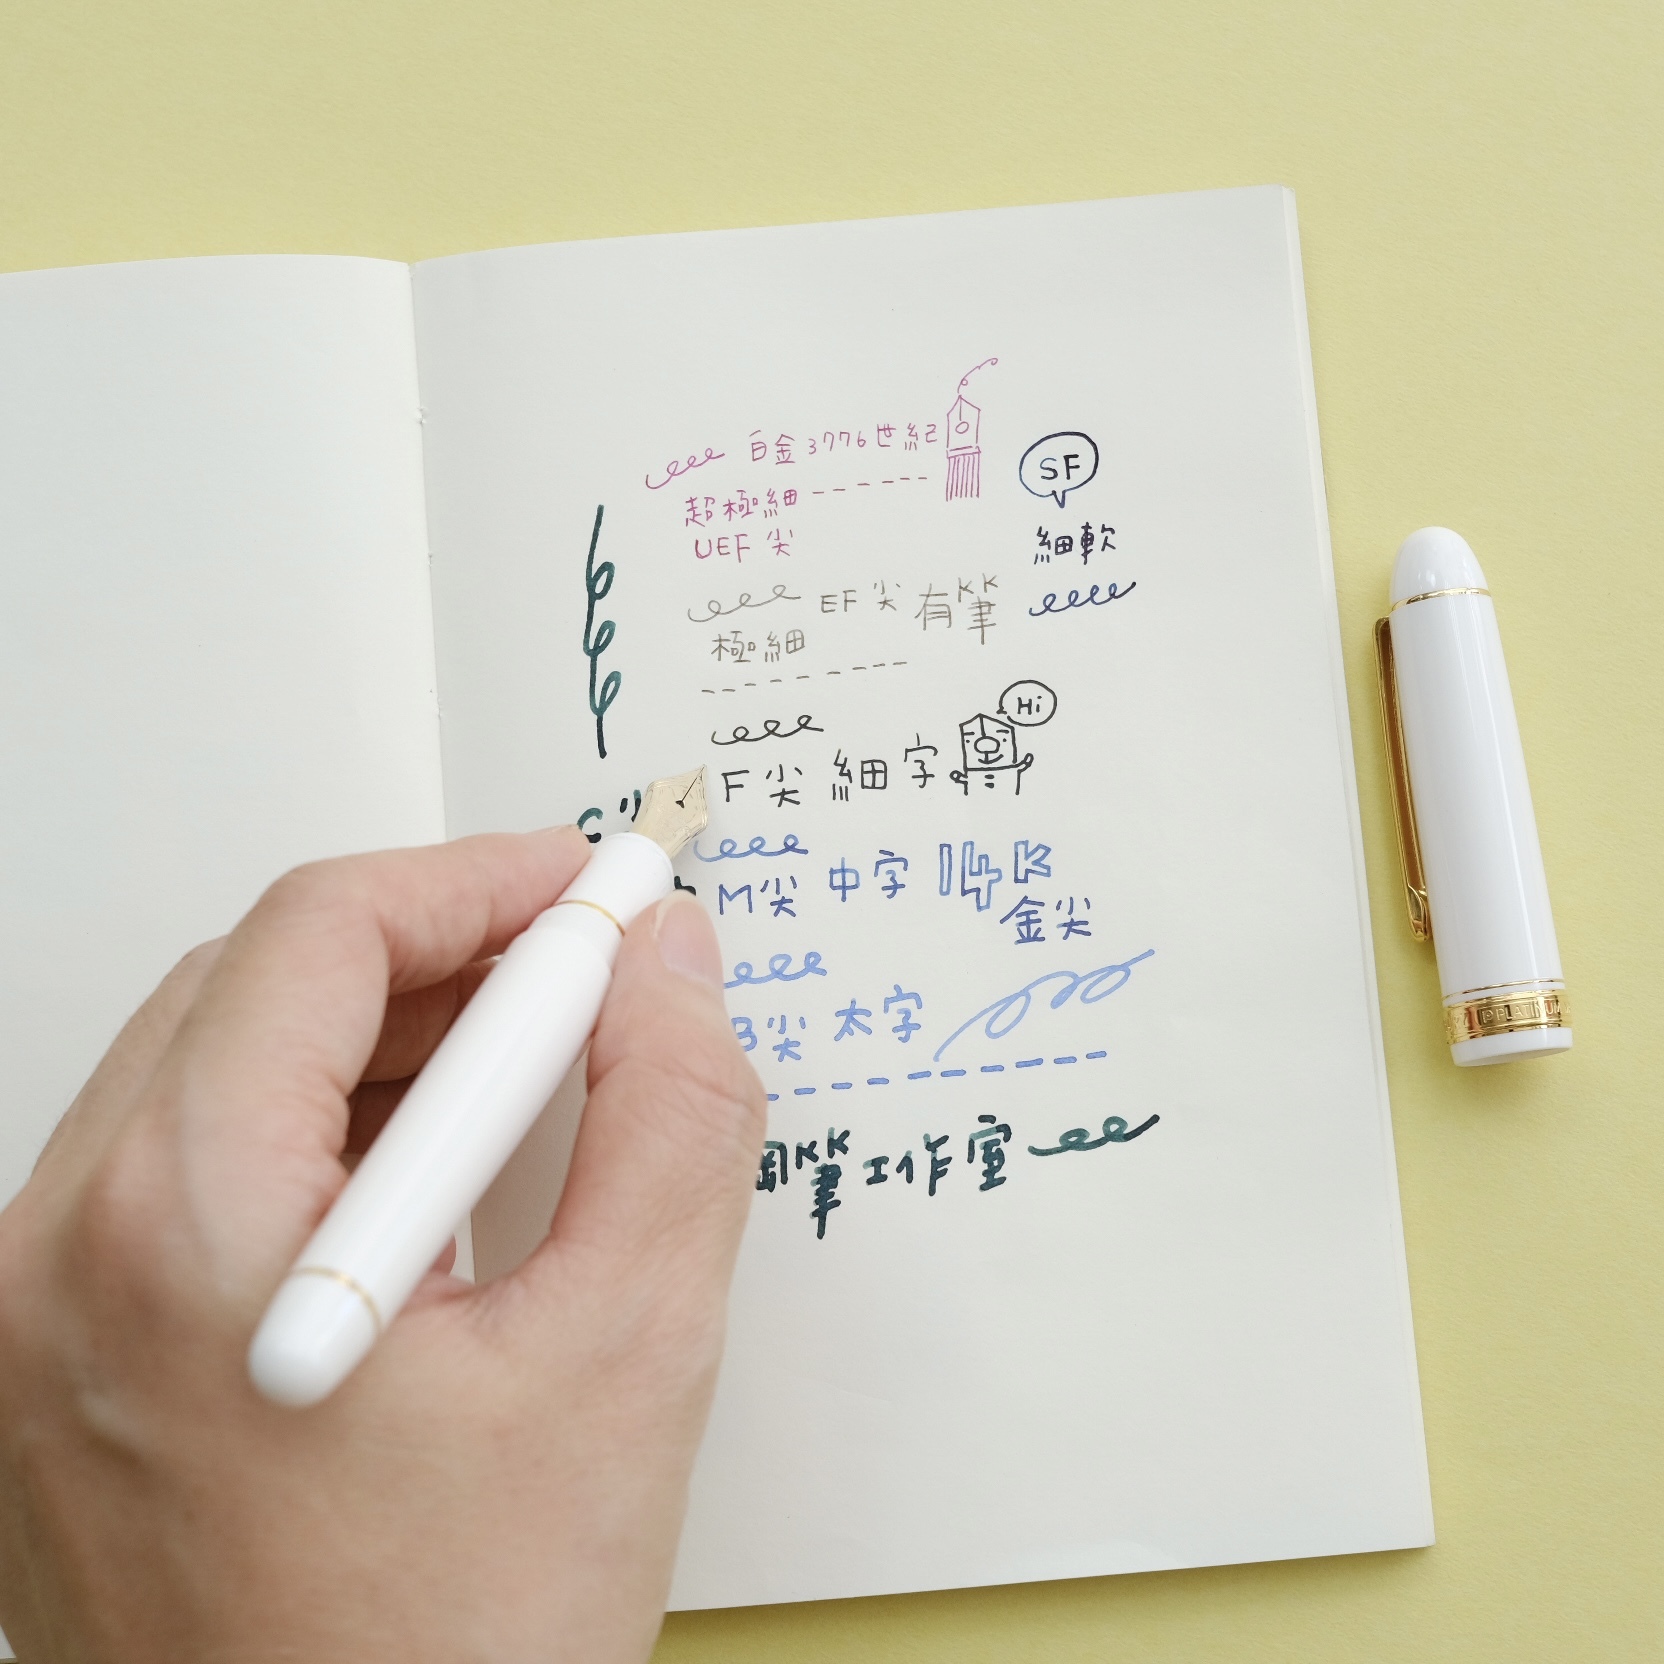 白金3776世紀
超極細
UEF尖
SF
細軟
EF尖 有筆
極細
Hi
F尖 細字
M尖 中字 14K
金尖
B尖 太字
鋼筆工作室
PLATINUM